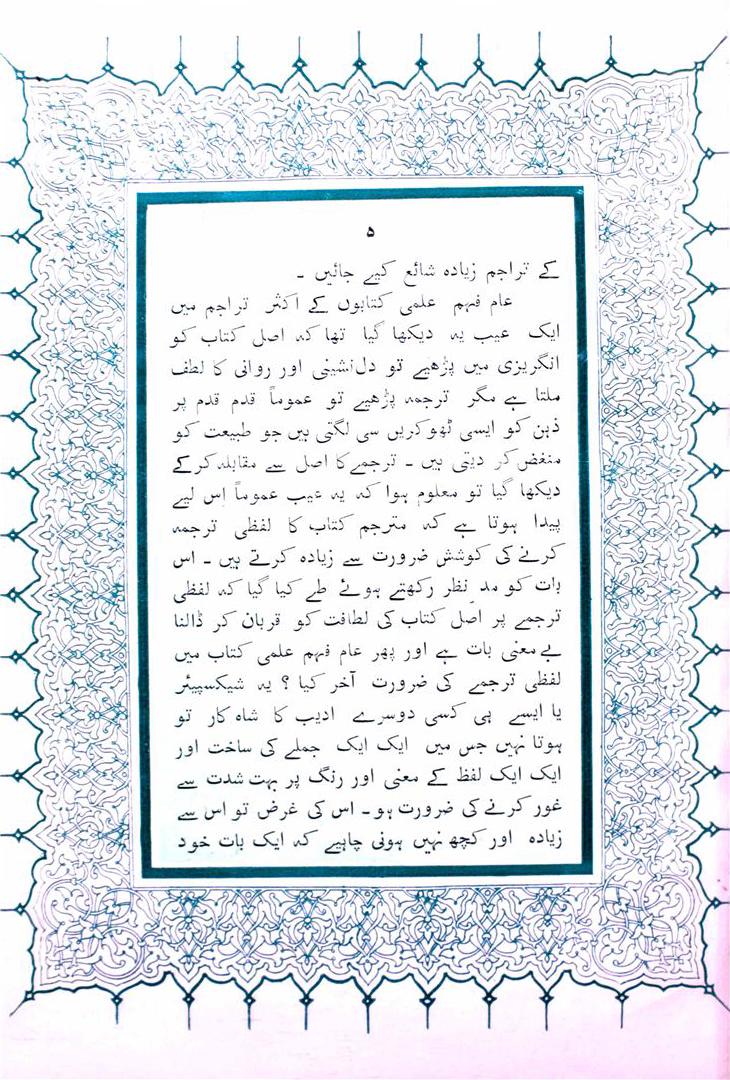 ۵
کے تراجم زیادہ شائع کیے جائیں ۔
عام فہم علمی کتابوں کے اکثر تراجم میں
ایک عیب یہ دیکھا گیا تھا کہ اصل کتاب کو
انگریزی میں پڑھیے تو دل‌نشینی اور روانی کا لطف
ملتا ہے مگر ترجمہ پڑھیے تو عموماً قدم قدم پر
ذہن کو ایسی ٹھوکریں سی لگتی ہیں جو طبیعت کو
منغض کر دیتی ہیں ۔ ترجمے کا اصل سے مقابلہ کر کے
دیکھا گیا تو معلوم ہوا کہ یہ عیب عموماً اِس لیے
پیدا ہوتا ہے کہ مترجم کتاب کا لفظی ترجمہ
کرنے کی کوشش ضرورت سے زیادہ کرتے ہیں ۔ اس
بات کو مد نظر رکھتے ہوئے طے کیا گیا کہ لفظی
ترجمے پر اصل کتاب کی لطافت کو قربان کر ڈالنا
بے معنی بات ہے اور پھر عام فہم علمی کتاب میں
لفظی ترجمے کی ضرورت آخر کیا ؟ یہ شیکسپیئر
یا ایسے ہی کسی دوسرے ادیب کا شاہ کار تو
ہوتا نہیں جس میں ایک ایک جملے کی ساخت اور
ایک ایک لفظ کے معنی اور رنگ پر بہت شدت سے
غور کرنے کی ضرورت ہو ۔ اس کی غرض تو اس سے
زیادہ اور کچھ نہیں ہونی چاہیے کہ ایک بات خود